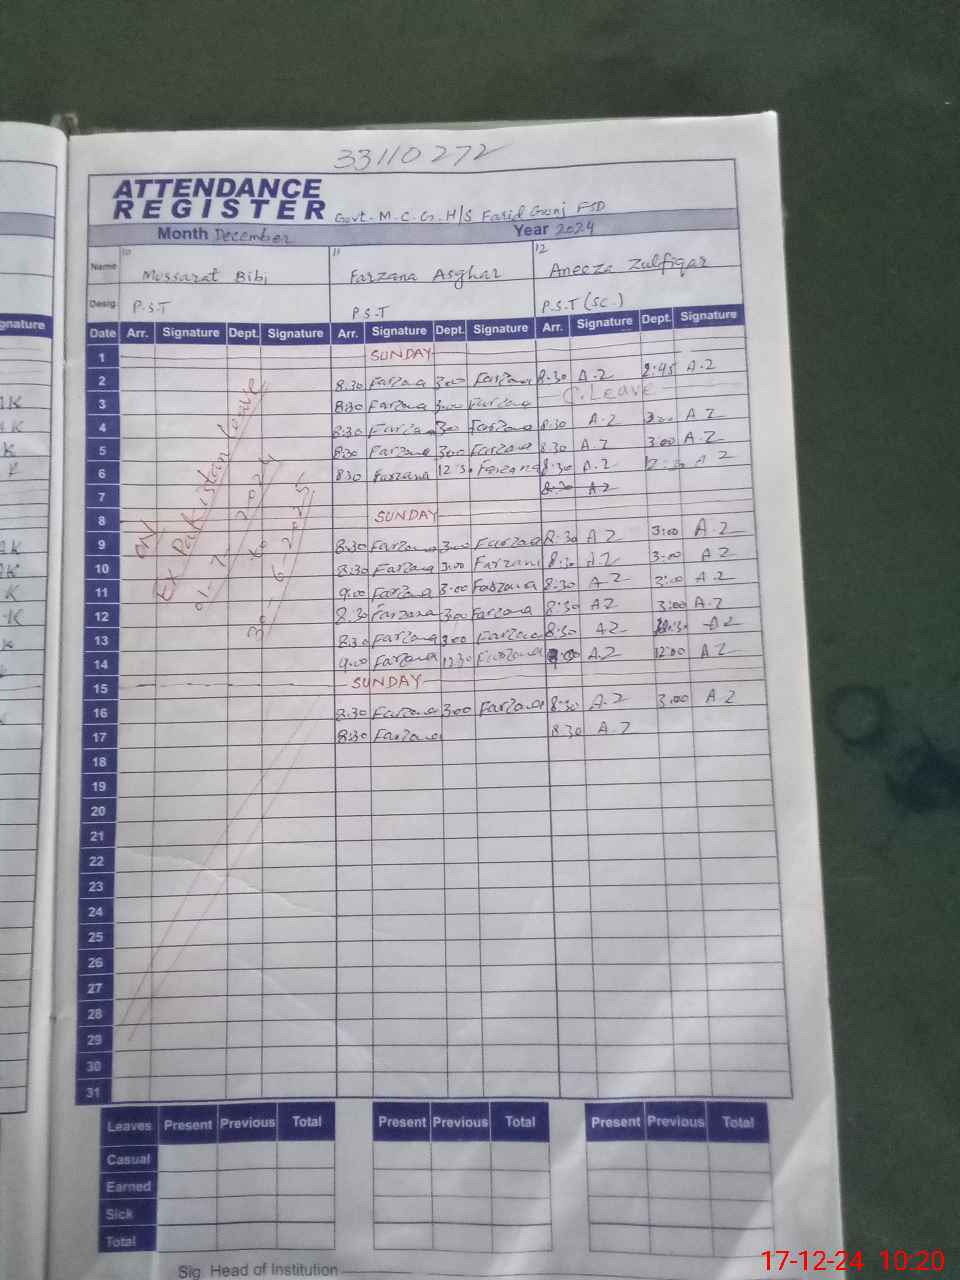 33110272
ATTENDANCE
REGISTER Govt. M.C.G.H/S Farid Gunj FSD
Month December Year 2024
Name 10 Mussarat Bibi 11 Farzana Asghar 12 Aneeza Zulfiqar
Desig P.S.T P.S.T P.S.T (SC.)
Date Arr. Signature Dept. Signature Arr. Signature Dept. Signature Arr. Signature Dept. Signature
1 SUNDAY
2 8:30 Farzana 3:00 Farzana 8:30 A.Z 2:45 A.Z
3 8:30 Farzana 3:00 Farzana C.Leave
4 8:30 Farzana 3:00 Farzana 8:30 A.Z 3:00 A.Z
5 8:30 Farzana 3:00 Farzana 8:30 A.Z 3:00 A.Z
6 8:30 Farzana 12:30 Farzana 8:30 A.Z 12:30 A.Z
7 8:30 A.Z
8 SUNDAY
9 8:30 Farzana 3:00 Farzana 8:30 A.Z 3:00 A.Z
10 8:30 Farzana 3:00 Farzana 8:30 A.Z 3:00 A.Z
11 9:00 Farzana 3:00 Farzana 8:30 A.Z 3:00 A.Z
12 8:30 Farzana 3:00 Farzana 8:30 A.Z 3:00 A.Z
13 8:30 Farzana 3:00 Farzana 8:30 A.Z A.Z
14 9:00 Farzana 12:30 Farzana A.Z 12:00 A.Z
15 SUNDAY
16 8:30 Farzana 3:00 Farzana 8:30 A.Z 3:00 A.Z
17 8:30 Farzana 8:30 A.Z
18
19
20
21
22
23
24
25
26
27
28
29
30
31
ON
Ex Pakistan Leave
01-7-2024
to
30-6-2025
Leaves Present Previous Total Present Previous Total Present Previous Total
Casual
Earned
Sick
Total
Sig. Head of Institution
17-12-24 10:20